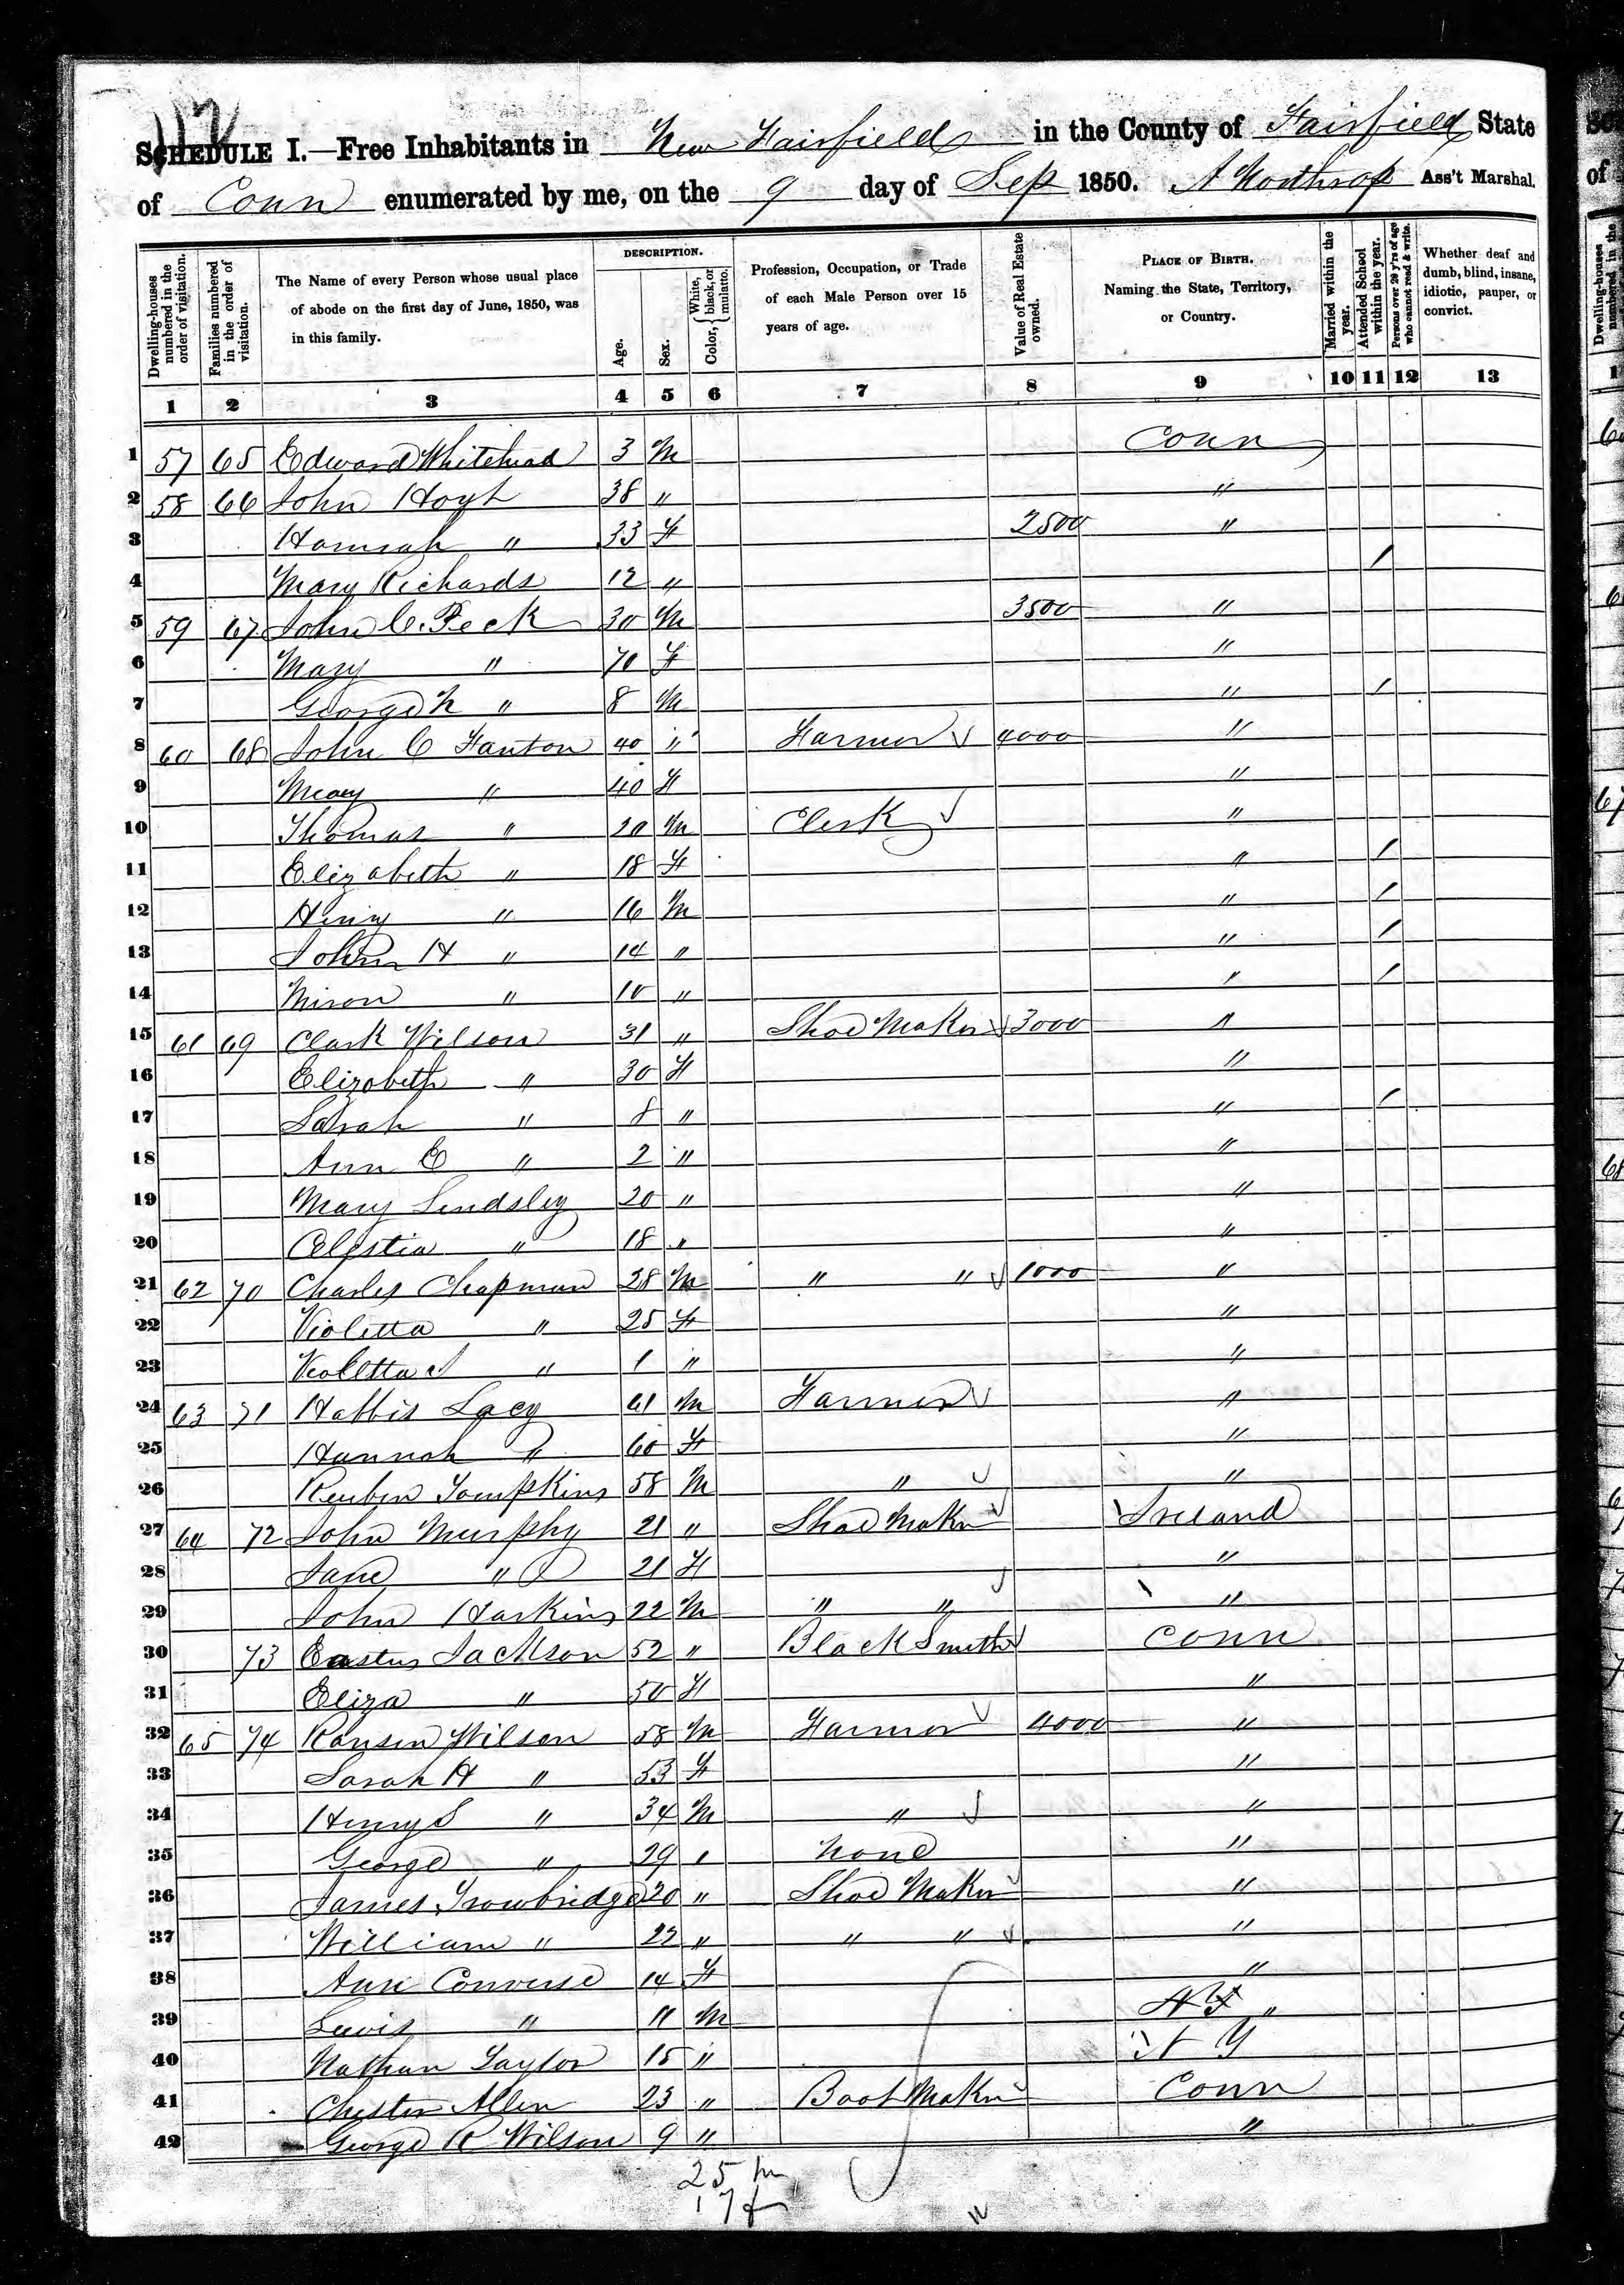 112
SCHEDULE I.—Free Inhabitants in New Fairfield in the County of Fairfield State
of Conn enumerated by me, on the 9 day of Sep 1850. A Northrop Ass't Marshal.
Dwelling-houses numbered in the order of visitation. Families numbered in the order of visitation. The Name of every Person whose usual place of abode on the first day of June, 1850, was in this family. DESCRIPTION. Age. Sex. Color, White, black, or mulatto. Profession, Occupation, or Trade of each Male Person over 15 years of age. Value of Real Estate owned. PLACE OF BIRTH. Naming the State, Territory, or Country. Married within the year. Attended School within the year. Persons over 20 y'rs of age who cannot read & write. Whether deaf and dumb, blind, insane, idiotic, pauper, or convict.
1 2 3 4 5 6 7 8 9 10 11 12 13
1 57 65 Edward Whitehead 3 M Conn
2 58 66 John Hoyt 38 " "
3 Hannah " 33 F 2500 "
4 Mary Richards 12 " /
5 59 67 John C. Peck 30 M 3500 "
6 Mary " 70 F "
7 George N " 8 M " /
8 60 68 John C Fanton 40 " Farmer ✓ 4000 "
9 Mary " 40 F "
10 Thomas " 20 M Clerk ✓ "
11 Elizabeth " 18 F " /
12 Henry " 16 M " /
13 John H " 14 " " /
14 Miron " 10 " " /
15 61 69 Clark Wilson 31 " Shoe Maker ✓ 3000 "
16 Elizabeth " 30 F "
17 Sarah " 8 " " /
18 Ann E " 2 " "
19 Mary Lindsley 20 " "
20 Celestia " 18 " "
21 62 70 Charles Chapman 28 M " " ✓ 1000 "
22 Violetta " 25 F "
23 Violetta S " 1 " "
24 63 71 Lacy 61 M Farmer ✓ "
25 Hannah " 60 F "
26 Reuben Tompkins 58 M " ✓ "
27 64 72 John Murphy 21 " Shoe Maker ✓ Ireland
28 Jane " 21 F "
29 John Harkins 22 M " " ✓ "
30 73 Eastus Jackson 52 " Black Smith ✓ Conn
31 Eliza " 50 F "
32 65 74 Ransen Wilson 58 M Farmer ✓ 4000 "
33 Sarah H " 53 F "
34 Henry S " 34 M " ✓ "
35 George " 29 " None "
36 James Trowbridge 20 " Shoe Maker ✓ "
37 William " 22 " " " ✓ "
38 Ann Converse 14 F "
39 Lewis " 11 M "
40 Nathan Taylor 15 " N Y
41 Chester Allen 23 " Boot Maker ✓ Conn
42 George R Wilson 9 " "
25 m
17 f